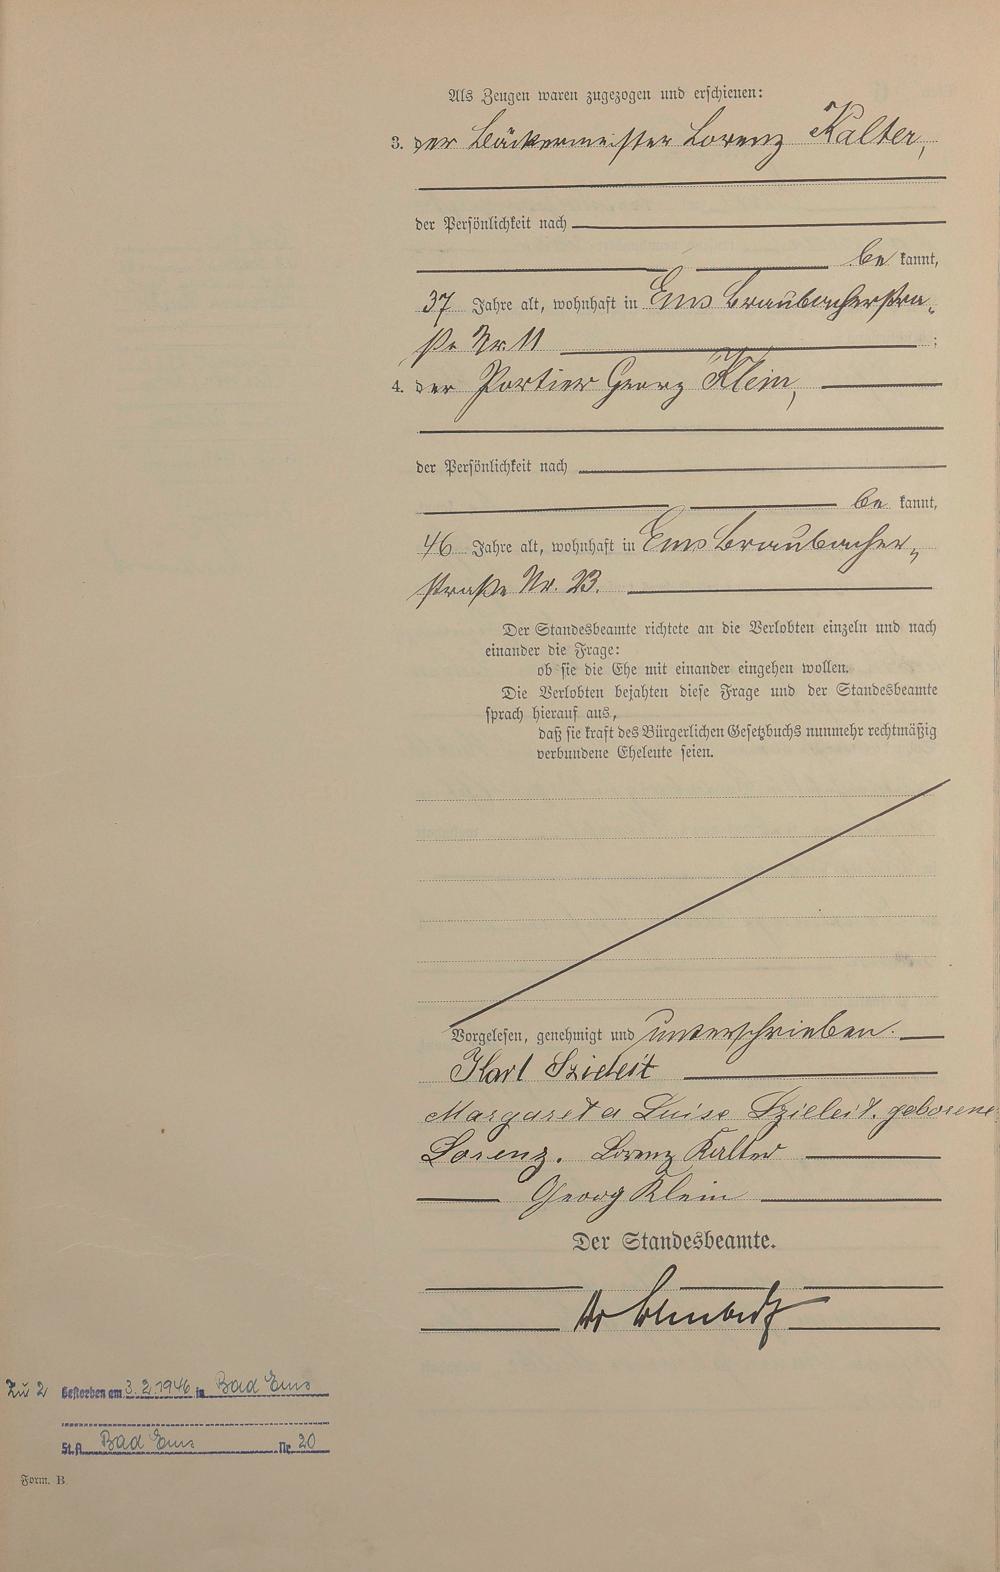 Als Zeugen waren zugezogen und erschienen:
3. der Bäckermeister Lorenz Kalter,
der Persönlichkeit nach
be kannt,
37 Jahre alt, wohnhaft in Ems Braubacherstra„
ße Nr. 11 ;
4. der Portier Georg Klein,
der Persönlichkeit nach
be kannt,
46 Jahre alt, wohnhaft in Ems Braubacher„
straße Nr. 23.
Der Standesbeamte richtete an die Verlobten einzeln und nach
einander die Frage:
ob sie die Ehe mit einander eingehen wollen.
Die Verlobten bejahten diese Frage und der Standesbeamte
sprach hierauf aus,
daß sie kraft des Bürgerlichen Gesetzbuchs nunmehr rechtmäßig
verbundene Eheleute seien.
Vorgelesen, genehmigt und unterschrieben.
Karl Szieleit
Margareta Luise Szieleit. geborene
Lorenz. Lorenz Kalter
Georg Klein
Der Standesbeamte.
Zu 2 Gestorben am 3.2.1946 in Bad Ems
St.A. Bad Ems Nr. 20
Form. B.